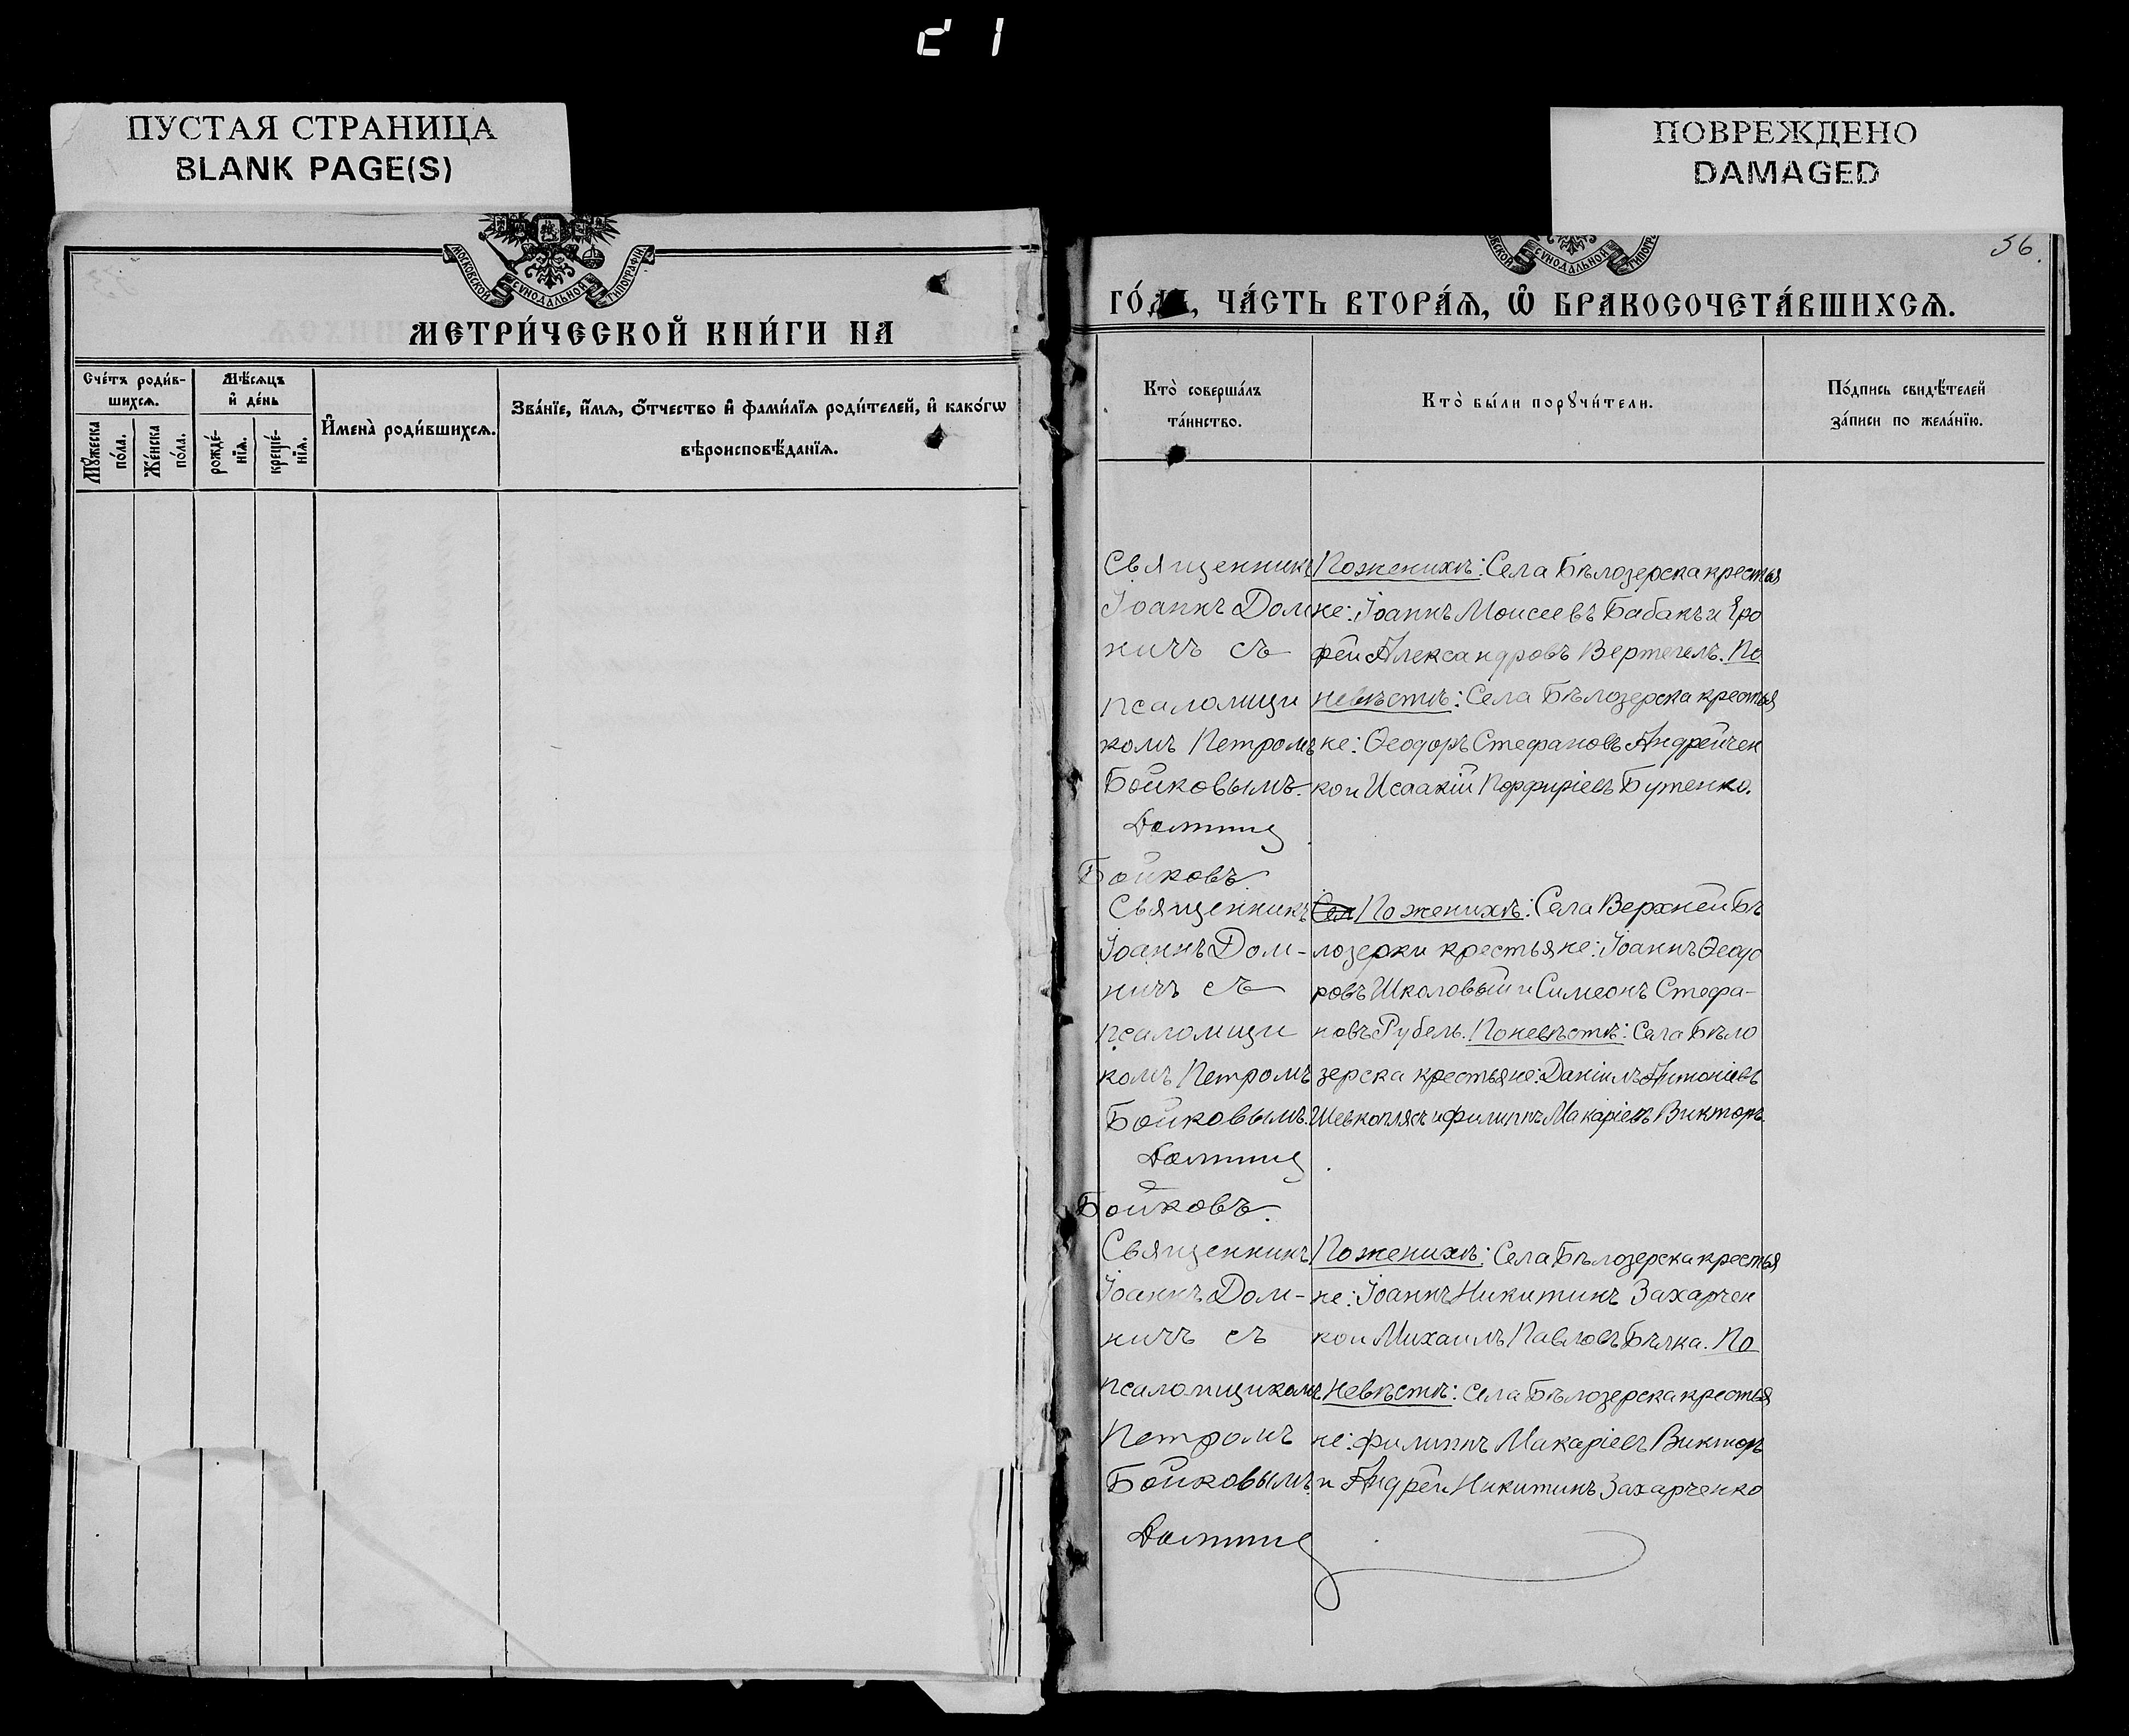 21
ПУСТАЯ СТРАНИЦА
BLANK PAGE(S)
МОСКОВСКОЙ СѴНОДАЛЬНОЙ ТИПОГРАФІИ
МЕТРИ́ЧЕСКОЙ КНИ́ГИ НА
Сче́тъ роди́вшихсѧ.
Мꙋ́жеска по́ла.
Же́нска по́ла.
Мѣ́сѧцъ и҆ де́нь
рожде́нїѧ.
креще́нїѧ.
И҆мена̀ роди́вшихсѧ.
Зва́нїе, и҆́мѧ, ѻ҆́тчество и҆ фами́лїѧ роди́телей, и҆ како́гѡ
вѣроисповѣ́данїѧ.
ПОВРЕЖДЕНО
DAMAGED
56.
СѴНОДАЛЬНОЙ ТИПОГРАФІИ
ГО́ДА, ЧА́СТЬ ВТОРА́Ѧ, Ѡ҆ БРАКОСОЧЕТА́ВШИХСѦ.
Кто̀ соверша́лъ
та́инство.
Кто̀ бы́ли порꙋчи́тели.
По́дпись свидѣ́телей
за́писи по жела́нїю.
Священникъ
Іоаннъ Дом
ничъ съ
псаломщи
комъ Петромъ
Бойковымъ.
Домничъ
Бойковъ.
По женихѣ: Села Бѣлозерска крестья
не: Іоаннъ Моисеевъ Бабакъ и Еро
фей Александровъ Вертегелъ. По
невѣстѣ: Села Бѣлозерска крестья
не: Ѳеодоръ Стефановъ Андрейчен
ко и Исаакій Порфиріевъ Бутенко.
Священникъ
Іоаннъ Дом-
ничъ съ
псаломщи
комъ Петромъ
Бойковымъ.
Домничъ
Бойковъ.
Сел По женихѣ: Села Верхней Бѣ
лозерки крестьяне: Іоаннъ Ѳеодо
ровъ Школовый и Симеонъ Стефа-
новъ Рубель. По невѣстѣ: Села Бѣло
зерска крестьяне: Даніилъ Антоніевъ
Шевкоплясъ и Филиппъ Макаріевъ Викторъ.
Священникъ
Іоаннъ Дом-
ничъ съ
псаломщикомъ
Петромъ
Бойковымъ.
Домничъ
По женихѣ: Села Бѣлозерска крестья
не: Іоаннъ Никитинъ Захарчен
ко и Михаилъ Павловъ Бѣлка. По
невѣстѣ: Села Бѣлозерска крестья
не: Филиппъ Макаріевъ Викторъ
и Андрей Никитинъ Захарченко